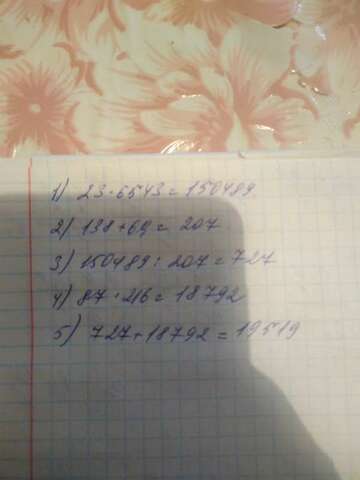 1) 23·6543=150489.
2) 138+69=207
3) 150489:207=727
4) 87·216=18792
5) 727+18792=19519